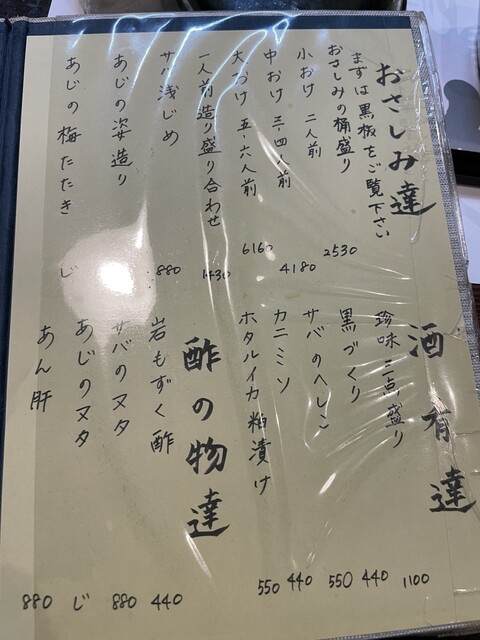 おさしみ達
まずは黒板をご覧下さい
おさしみの桶盛り
小おけ 二人前 2530
中おけ 三、四人前 4180
大おけ 五、六人前 6160
一人前造り盛り合わせ 1430
サバ浅じめ 880
あじの姿造り
あじの梅たたき じ
酒有達
珍味三点盛り 1100
黒づくり 440
サバのへしこ 550
カニミソ 440
ホタルイカ粕漬け 550
酢の物達
岩もずく酢 440
サバのヌタ 880
あじのヌタ じ
あん肝 880